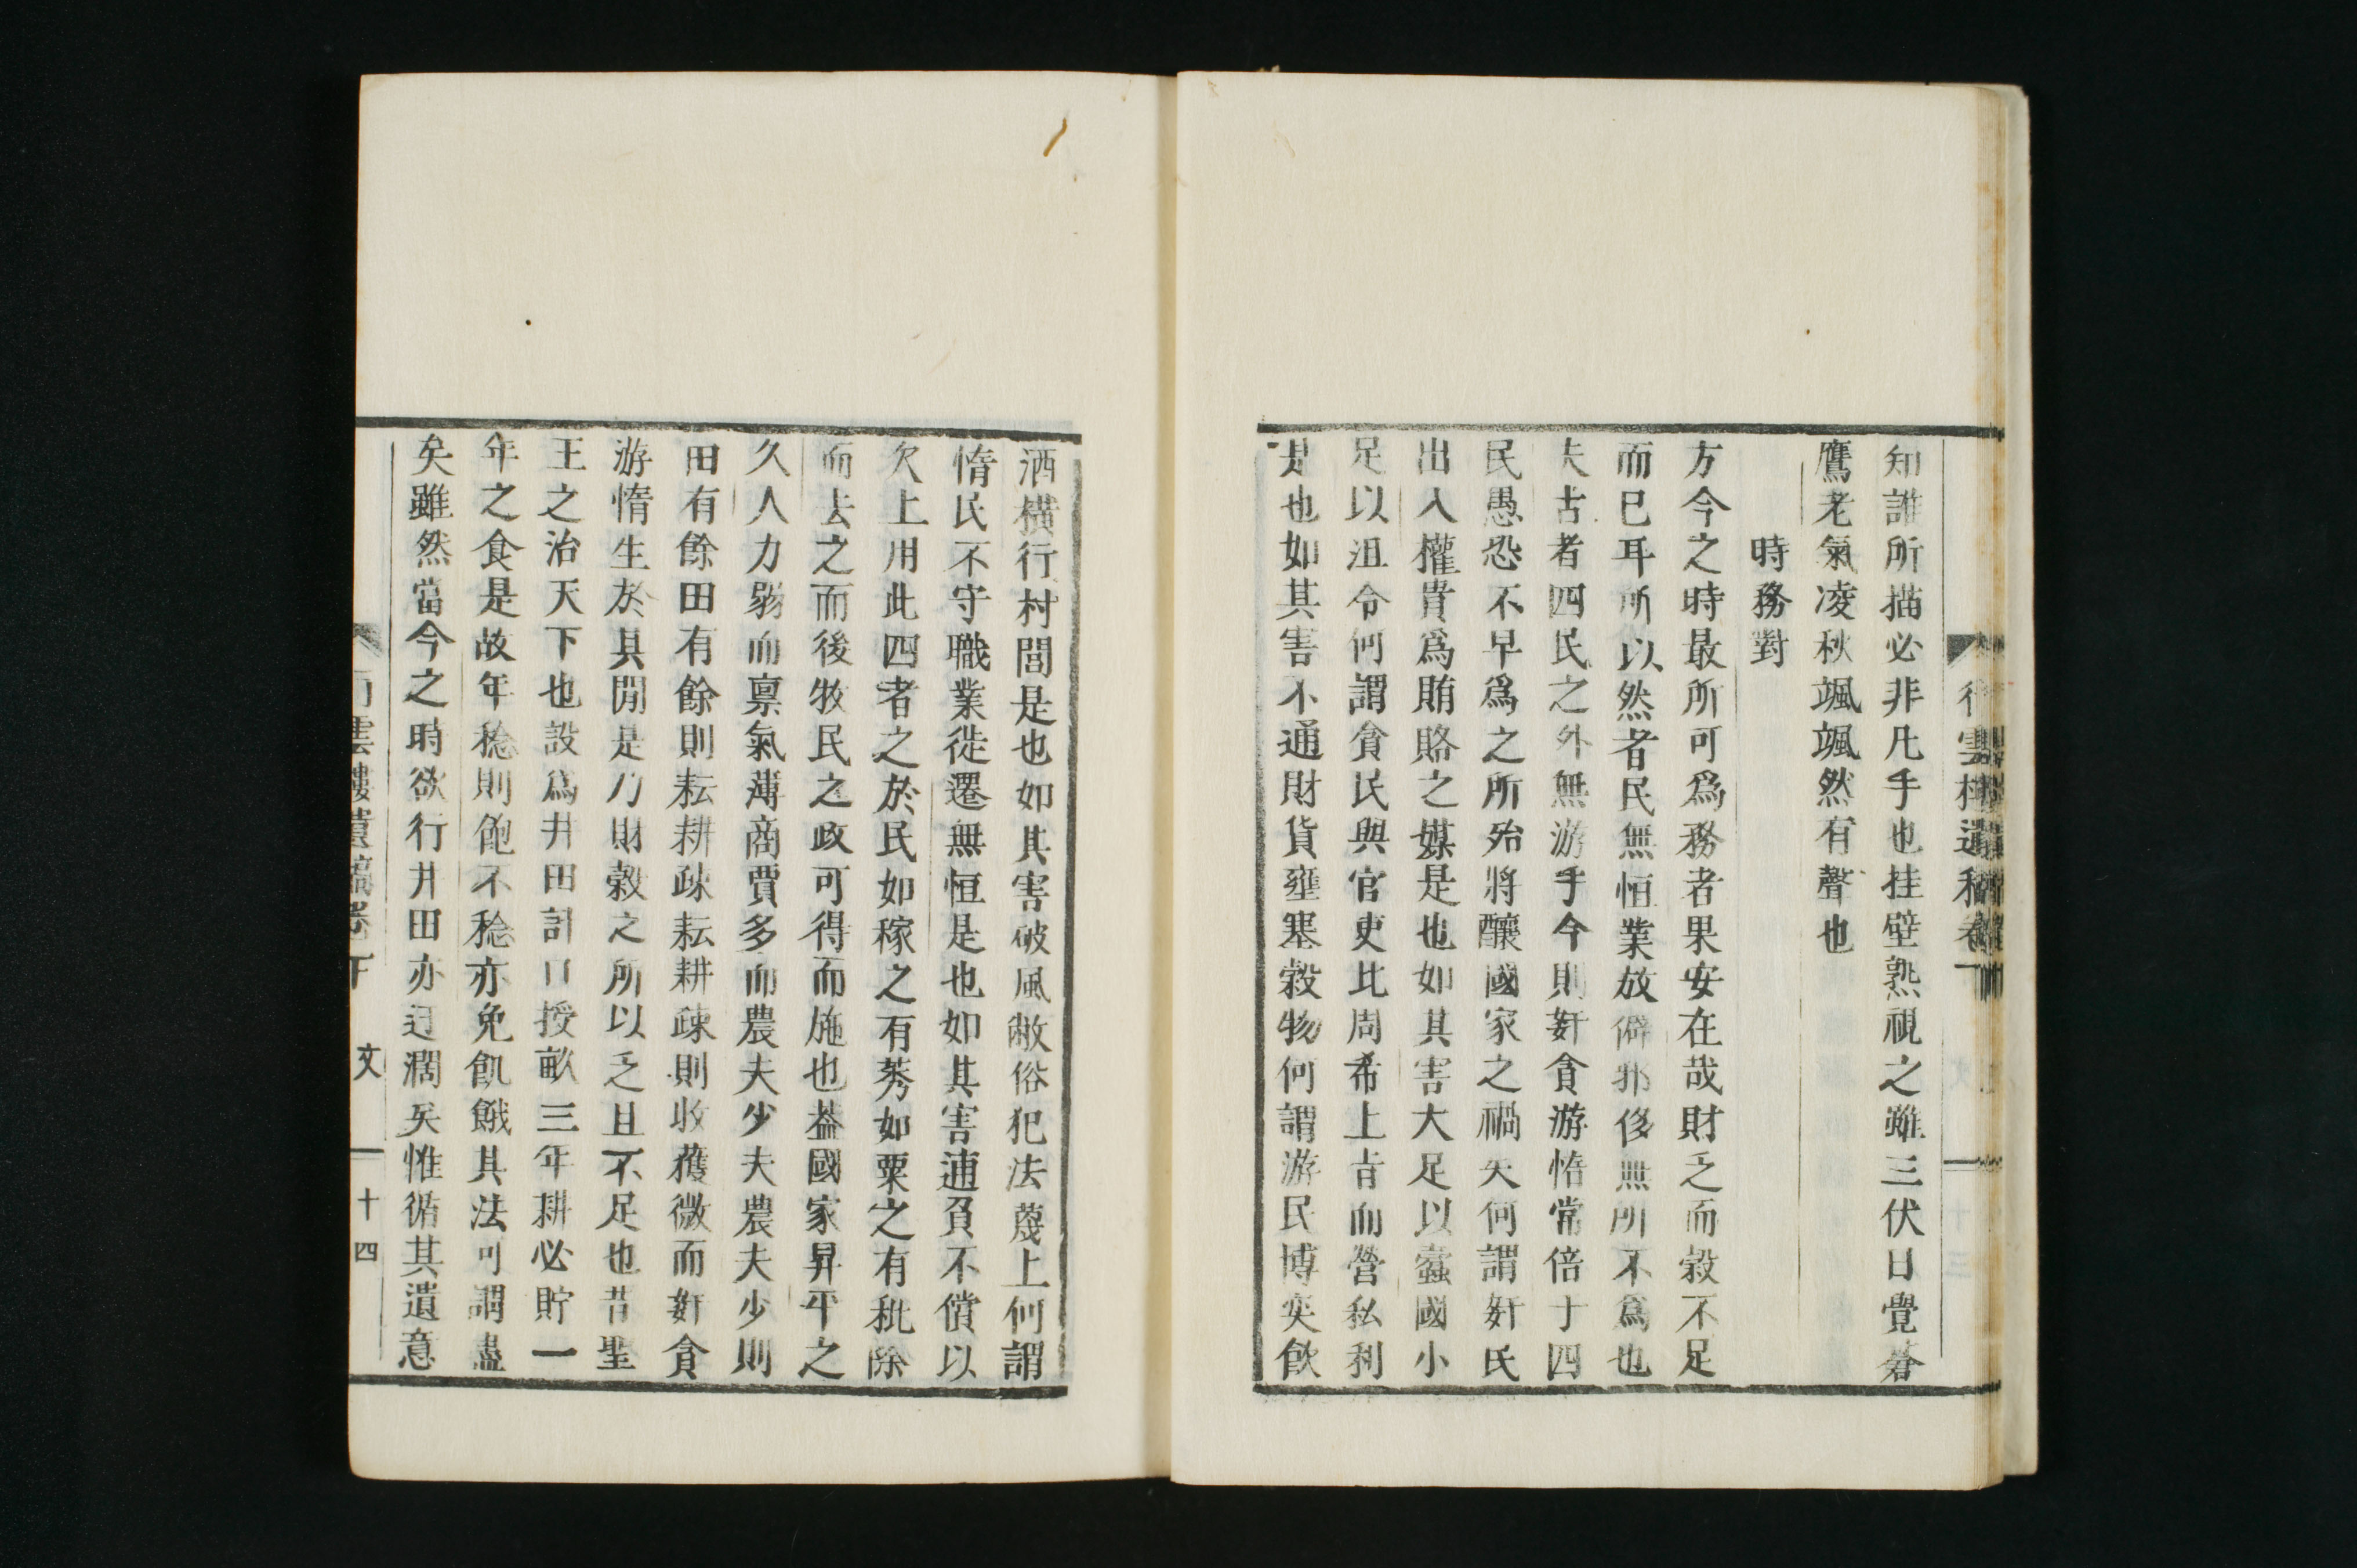 知誰所描必非凡手也挂壁熟視之雖三伏日覺蒼
鷹老氣凌秋颯颯然有聲也
時務對
方今之時最所可爲務者果安在哉財乏而穀不足
而已耳所以然者民無恒業放僻邪侈無所不爲也
夫古者四民之外無游手今則奸貪游惰常倍于四
民愚恐不早爲之所殆將釀國家之禍矣何謂奸民
出入權貴爲賄賂之媒是也如其害大足以蠹國小
足以沮令何謂貪民與官吏比周希上旨而營私利
是也如其害不通財貨壅塞穀物何謂游民博奕飮
酒橫行村閭是也如其害破風敝俗犯法蔑上何謂
惰民不守職業徙遷無恒是也如其害逋負不償以
欠上用此四者之於民如稼之有莠如粟之有秕除
而去之而後牧民之政可得而施也蓋國家昇平之
久人力弱而禀氣薄商賈多而農夫少夫農夫少則
田有餘田有餘則耘耕疎耘耕疎則收穫微而奸貪
游惰生於其間是乃財穀之所以乏且不足也昔聖
王之治天下也設爲井田計口授畝三年耕必貯一
年之食是故年稔則飽不稔亦免飢餓其法可謂盡
矣雖然當今之時欲行井田亦迂濶矣惟循其遺意
雲樓遺稿卷下 文 十四